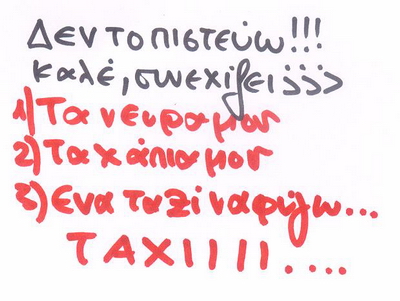 Δεν το πιστεύω!!!
καλέ, συνεχίζει;;;>
1) Τα νευρα μου
2) Τα χάπια μου
3) Ενα ταξί να φύγω...
ΤΑΧΙΙΙΙ....